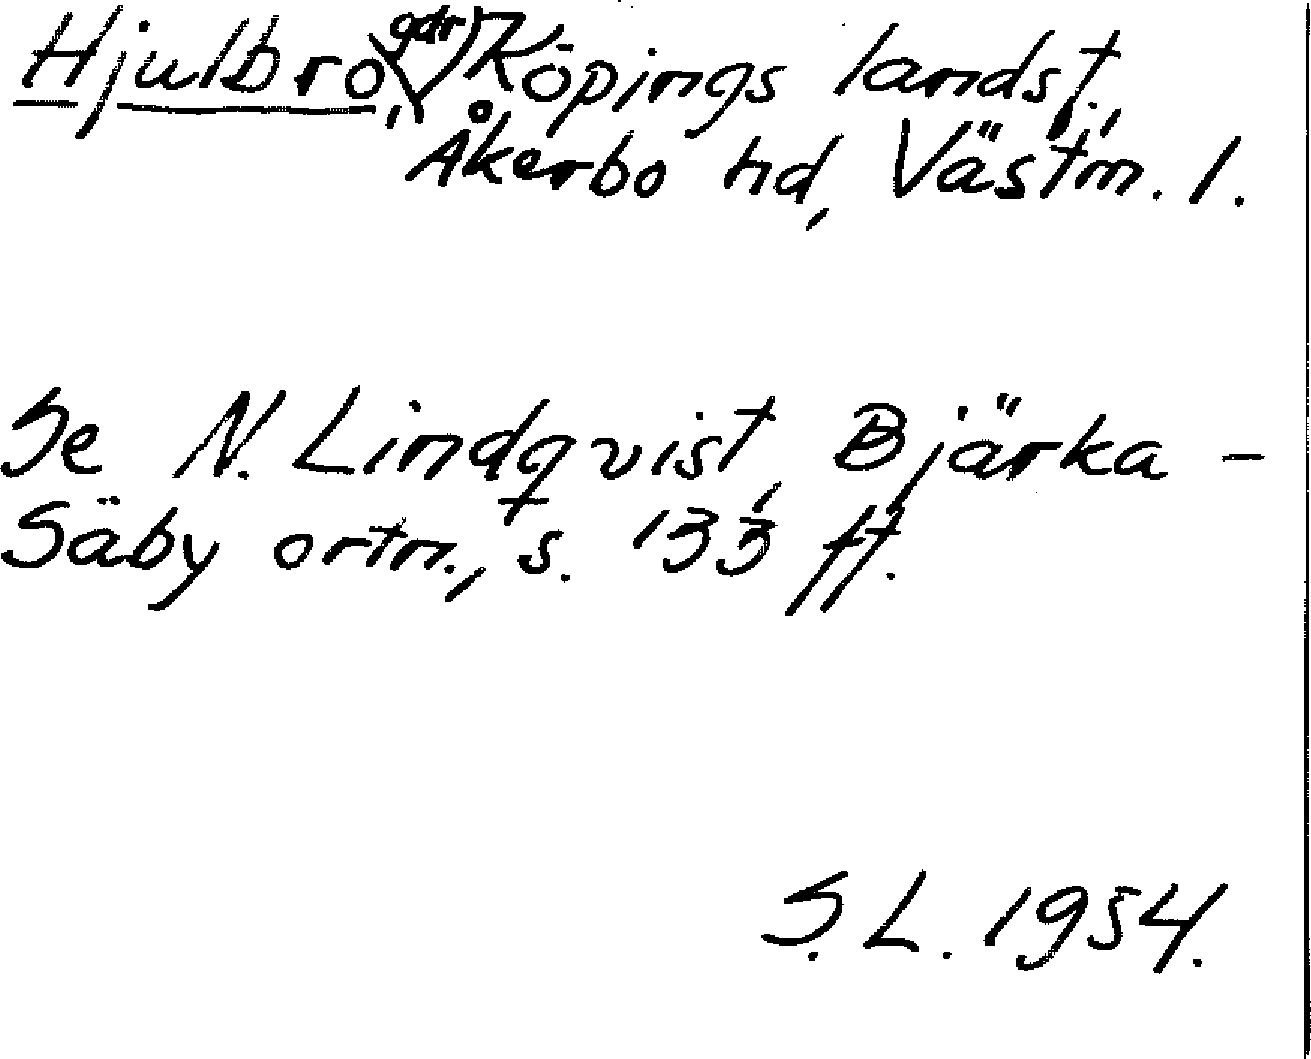 Hjulbro, gdr, Köpings landsf.,
Åkerbo hd, Västm. l.
Se N. Lindqvist, Bjärka-
Säby ortn., s. 133 ff.
S. L. 1954.